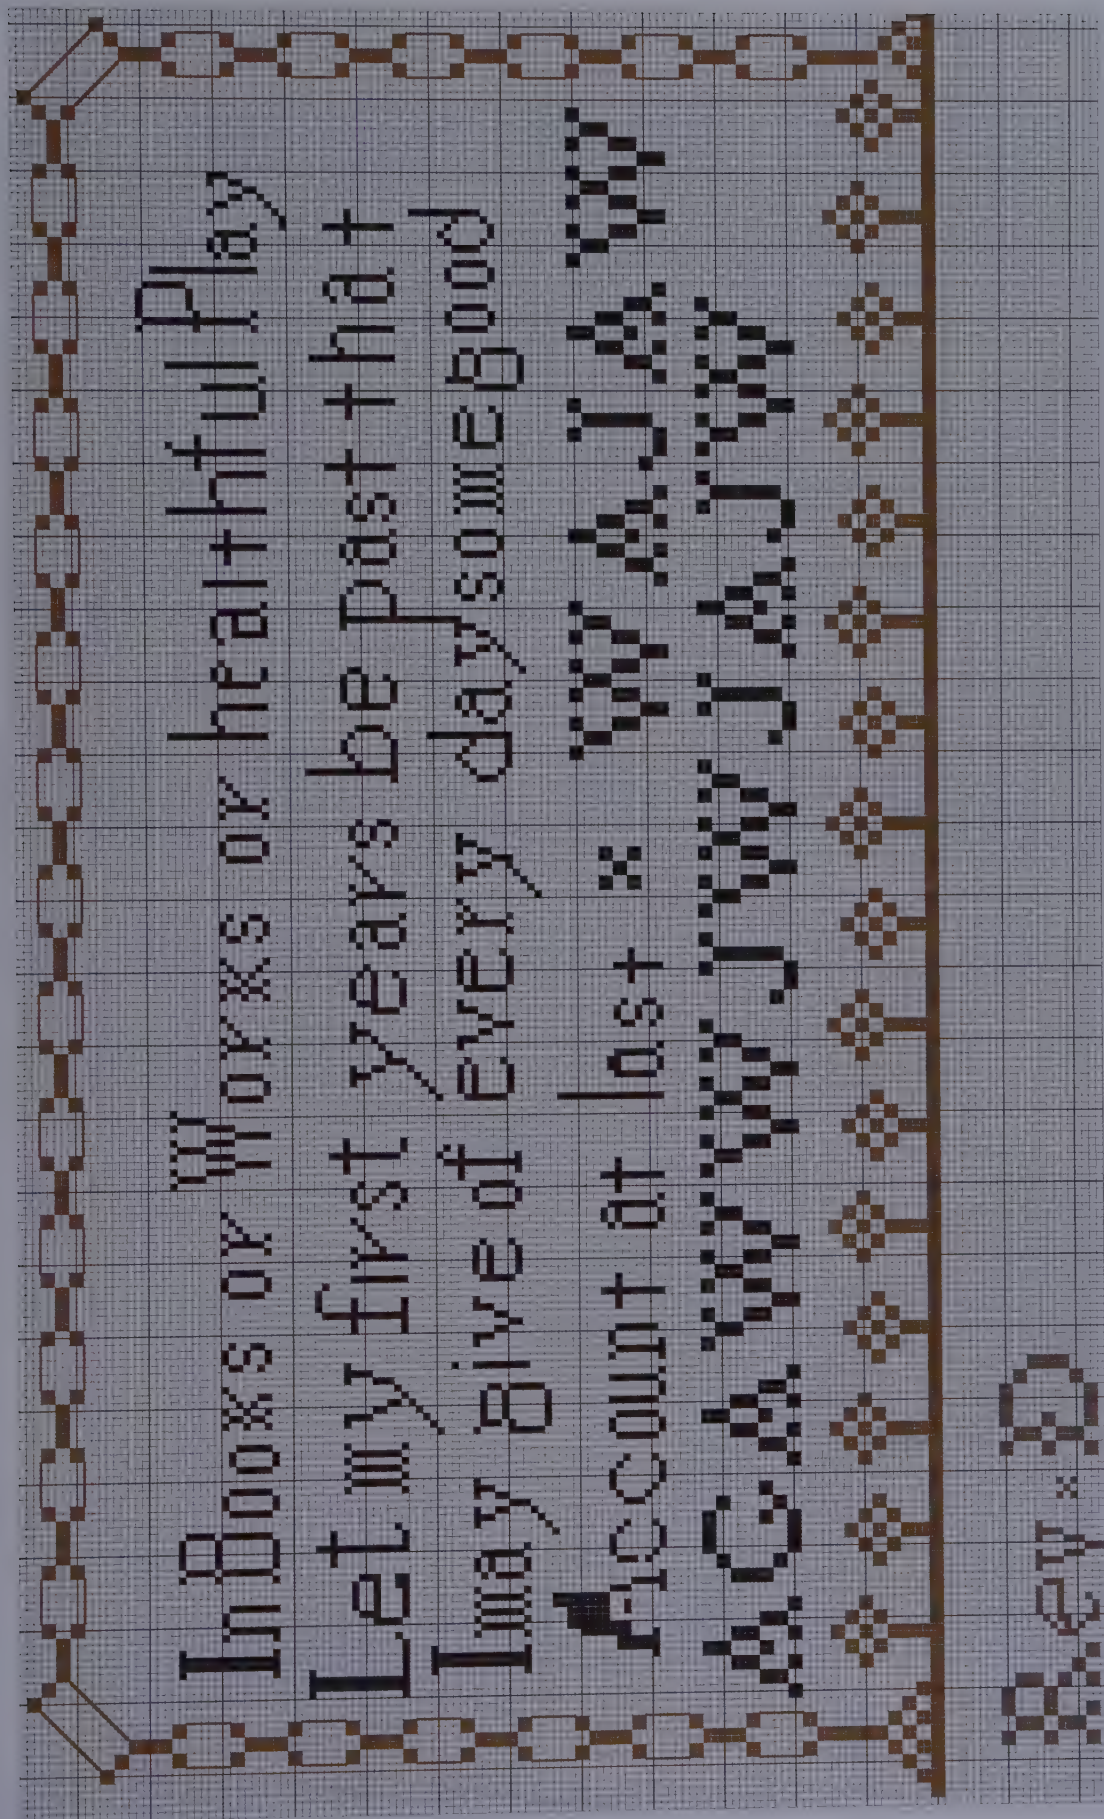 In Booxs or Worxs or healthful Play
Let my first years be past that
I may Give of every day some good
Account at last × W A J A W
A C A W W J W J A J W
Rev